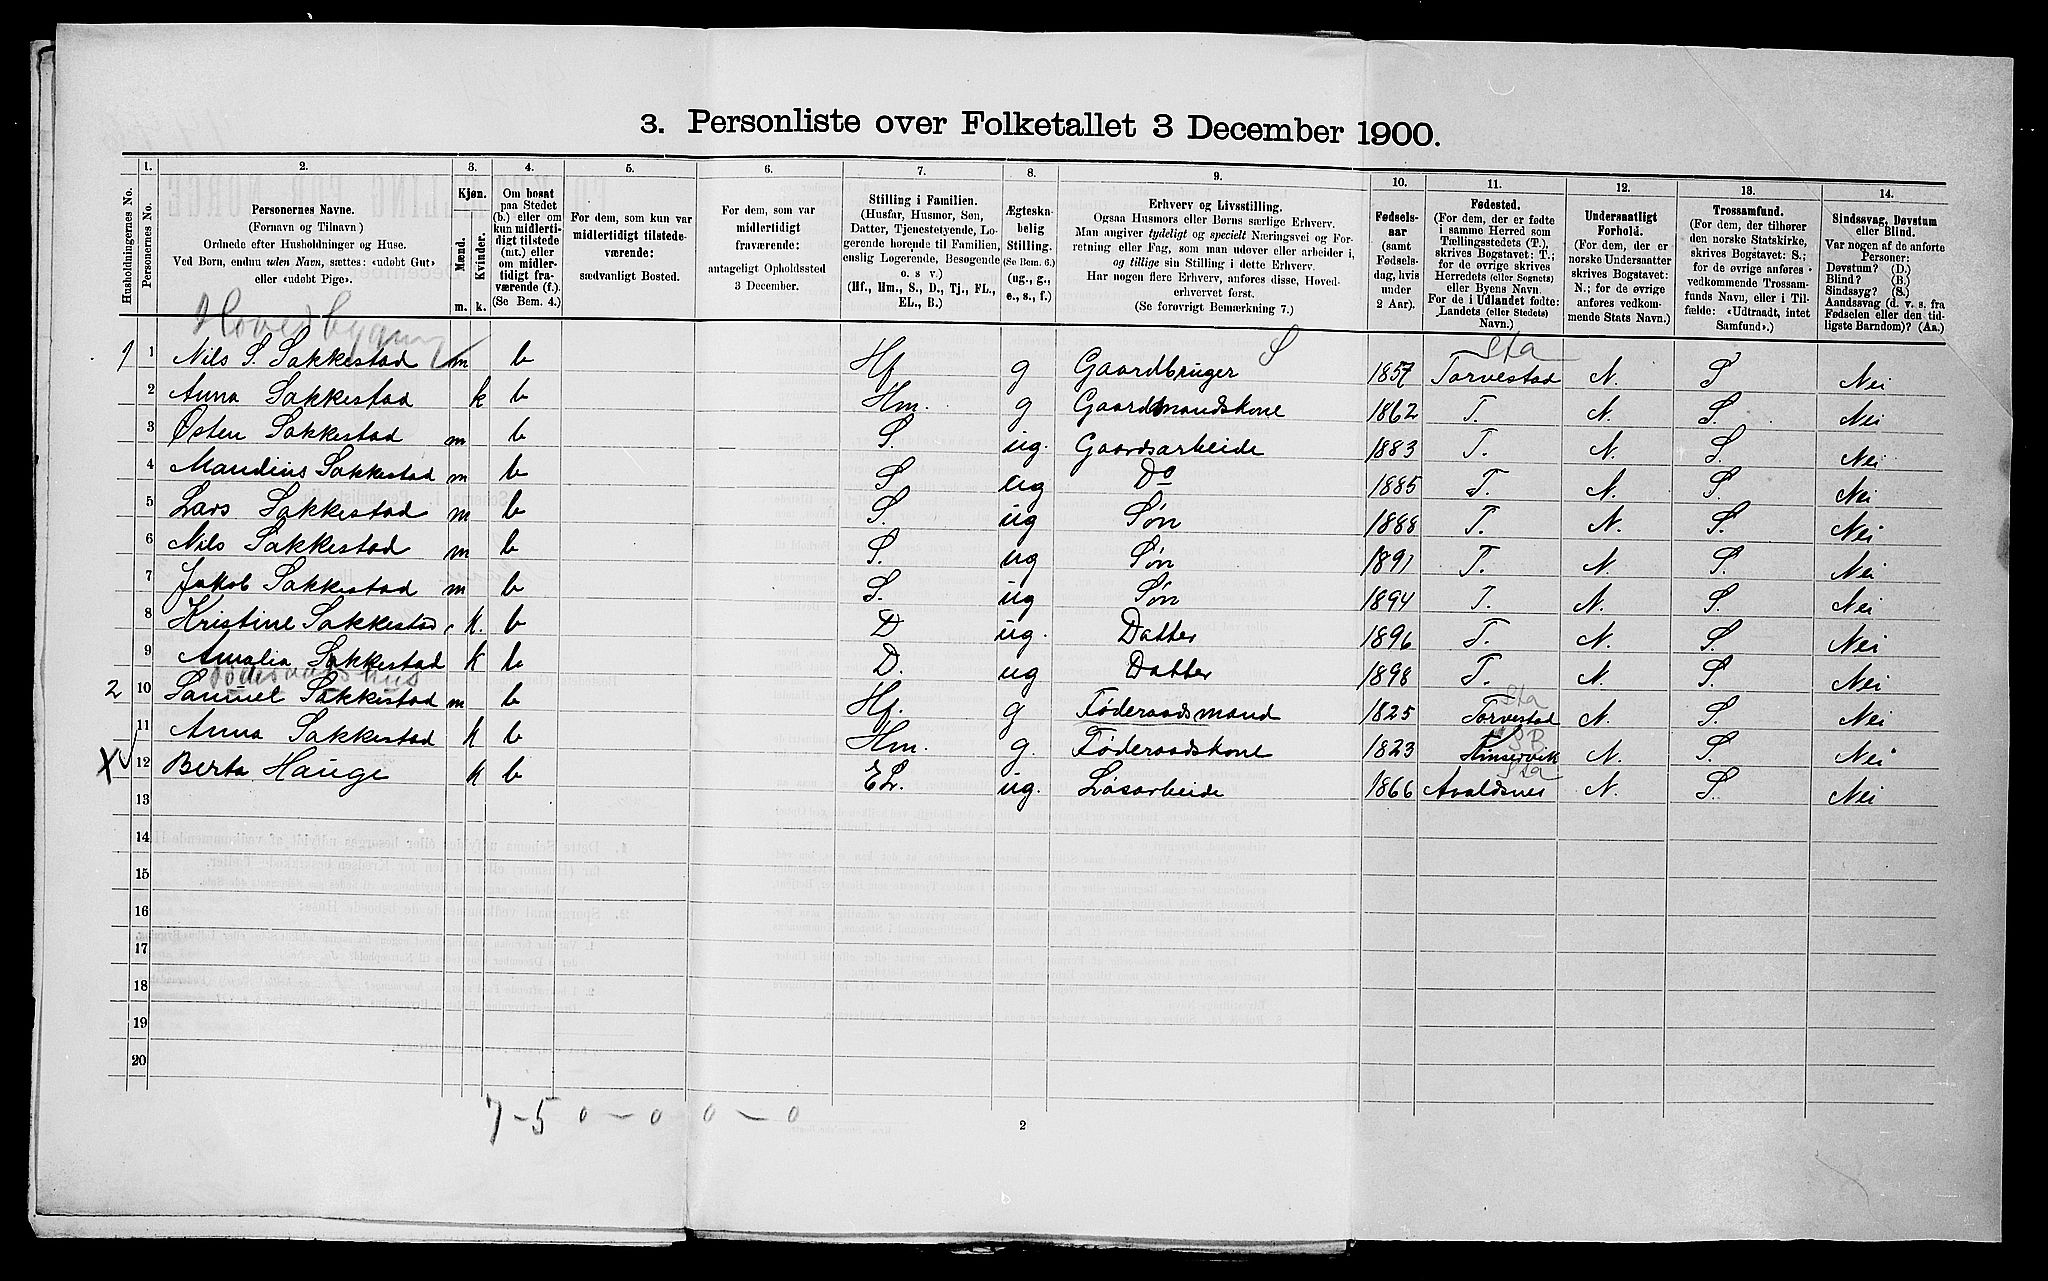 3. Personliste over Folketallet 3 December 1900.
Husholdningernes No.
1. Personernes No.
2. Personernes Navne.
(Fornavn og Tilnavn)
Ordnede efter Husholdninger og Huse.
Ved Børn, endnu uden Navn, sættes: «udøbt Gut»
eller «udøbt Pige».
3. Kjøn.
Mænd. Kvinder.
m. k.
4. Om bosat
paa Stedet
(b.) eller om
kun midlerti-
digt tilstede
(mt.) eller
om midler-
tidigt fra-
værende (f.).
(Se Bem. 4.)
5. For dem, som kun var
midlertidigt tilstede-
værende:
sædvanligt Bosted.
6. For dem, som var
midlertidigt
fraværende:
antageligt Opholdssted
3 December.
7. Stilling i Familien.
(Husfar, Husmor, Søn,
Datter, Tjenestetyende, Lo-
gerende hørende til Familien,
enslig Logerende, Besøgende
o. s v.)
(Hf., Hm., S., D., Tj., FL.,
EL., B.)
8. Ægteska-
belig
Stilling.
(Se Bem. 6.)
(ug., g.,
e., s., f.)
9. Erhverv og Livsstilling.
Ogsaa Husmors eller Børns særlige Erhverv.
Man angiver tydeligt og specielt Næringsvei og For-
retning eller Fag, som man udøver eller arbeider i,
og tillige sin Stilling i dette Erhverv.
Har nogen flere Erhverv, anføres disse, Hoved-
erhvervet først.
(Se forøvrigt Bemærkning 7.)
10. Fødsels-
aar
(samt
Fødsels-
dag, hvis
under
2 Aar).
11. Fødested.
(For dem, der er fødte
i samme Herred som
Tællingsstedets (T.),
skrives Bogstavet: T.;
for de øvrige skrives
Herredets (eller Sognets)
eller Byens Navn.
For de i Udlandet fødte:
Landets (eller Stedets)
Navn.)
12. Undersaatligt
Forhold.
(For dem, der er
norske Undersaatter
skrives Bogstavet:
N.; for de øvrige
anføres vedkom-
mende Stats Navn.)
13. Trossamfund.
(For dem, der tilhører
den norske Statskirke,
skrives Bogstavet: S.;
for de øvrige anføres
vedkommende Trossam-
funds Navn, eller i Til-
fælde: «Udtraadt, intet
Samfund».)
14. Sindssvag, Døvstum
eller Blind.
Var nogen af de anførte
Personer:
Døvstum? (D.)
Blind? (B.)
Sindssyg? (S.)
Aandssvag (d. v. s. fra
Fødselen eller den tid-
ligste Barndom)? (Aa.)
Hovedbygning
S Sta
1 1 Nils S. Sakkestad m b Hf g Gaardbruger 1857 Torvestad N. S Nei
2 Anna Sakkestad k b Hm. g Gaardmandskone 1862 T. N. S. Nei
3 Østen Sakkestad m b S. ug. Gaardsarbeide 1883 T. N. S. Nei
4 Maudius Sakkestad m b S ug Do 1885 T. N. S. Nei
5 Lars Sakkestad m b S. ug Søn 1888 T. N. S. Nei
6 Nils Sakkestad m b S. ug Søn 1891 T. N. S. Nei
7 Jakob Sakkestad m b S. ug Søn 1894 T. N. S. Nei
8 Kristine Sakkestad k. b D ug. Datter 1896 T. N. S. Nei
9 Amalia Sakkestad k b D. ug Datter 1898 T. N. S. Nei
Føderaadshus Sta
2 10 Samuel Sakkestad m b Hf. g Føderaadsmand 1825 Torvestad N. S. Nei
SB
11 Anna Sakkestad k b Hm. g. Føderaadskone 1823 Kinservik N. S. Nei
Sta
X 12 Berta Hauge k b EL. ug. Løsarbeide 1866 Avaldsnes N. S. Nei
13
14
15
16
17
18
19
20
7-5 0-0 0-0
2